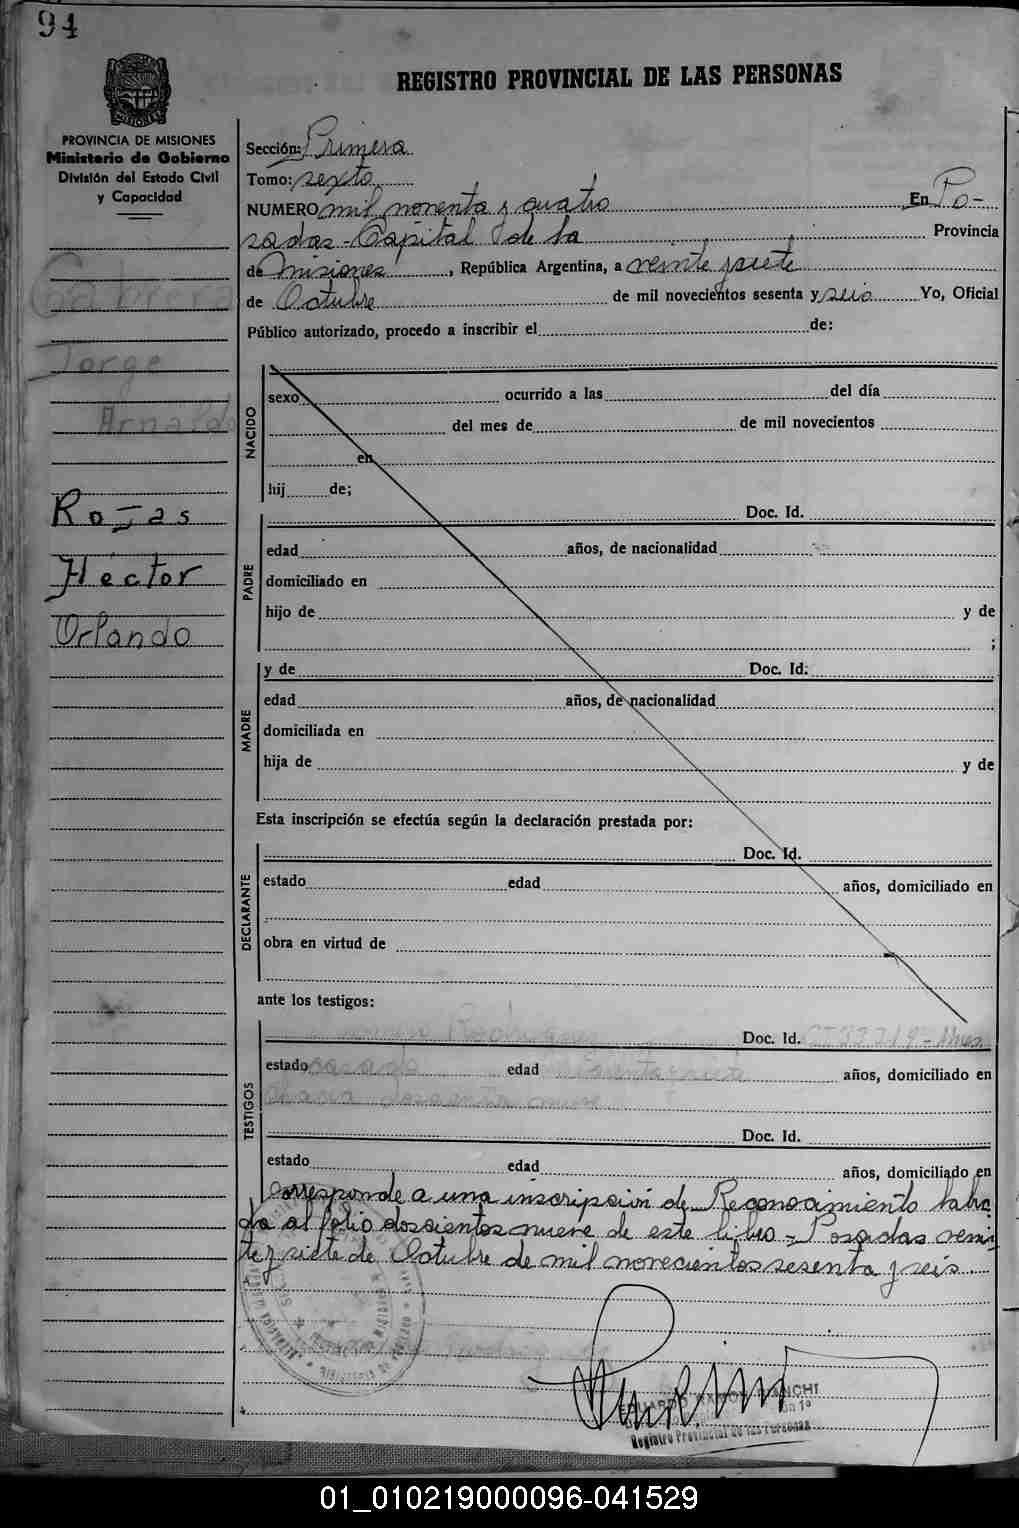 94
REGISTRO PROVINCIAL DE LAS PERSONAS
PROVINCIA DE MISIONES
Ministerio de Gobierno
División del Estado Civil
y Capacidad
Cabrera
Jorge
Arnaldo
Rojas
Héctor
Orlando
Sección: Primera
Tomo: sexto
NUMERO mil noventa y cuatro En Po-
sadas - Capital de la Provincia
de Misiones, República Argentina, a veinte y siete
de Octubre de mil novecientos sesenta y seis Yo, Oficial
Público autorizado, procedo a inscribir el de:
NACIDO
sexo ocurrido a las del día
del mes de de mil novecientos
en
hij de;
PADRE
Doc. Id.
edad años, de nacionalidad
domiciliado en
hijo de y de
;
MADRE
y de Doc. Id.
edad años, de nacionalidad
domiciliada en
hija de y de
Esta inscripción se efectúa según la declaración prestada por:
DECLARANTE
Doc. Id.
estado edad años, domiciliado en
obra en virtud de
ante los testigos:
TESTIGOS
Rodriguez Doc. Id.
estado casado edad años, domiciliado en
doscientos nueve
Doc. Id.
estado edad años, domiciliado en
Corresponde a una inscripción de Reconocimiento labra
da al folio doscientos nueve de este libro - Posadas vein
te y siete de Octubre de mil novecientos sesenta y seis
Registro Provincial de las Personas
01_010219000096-041529